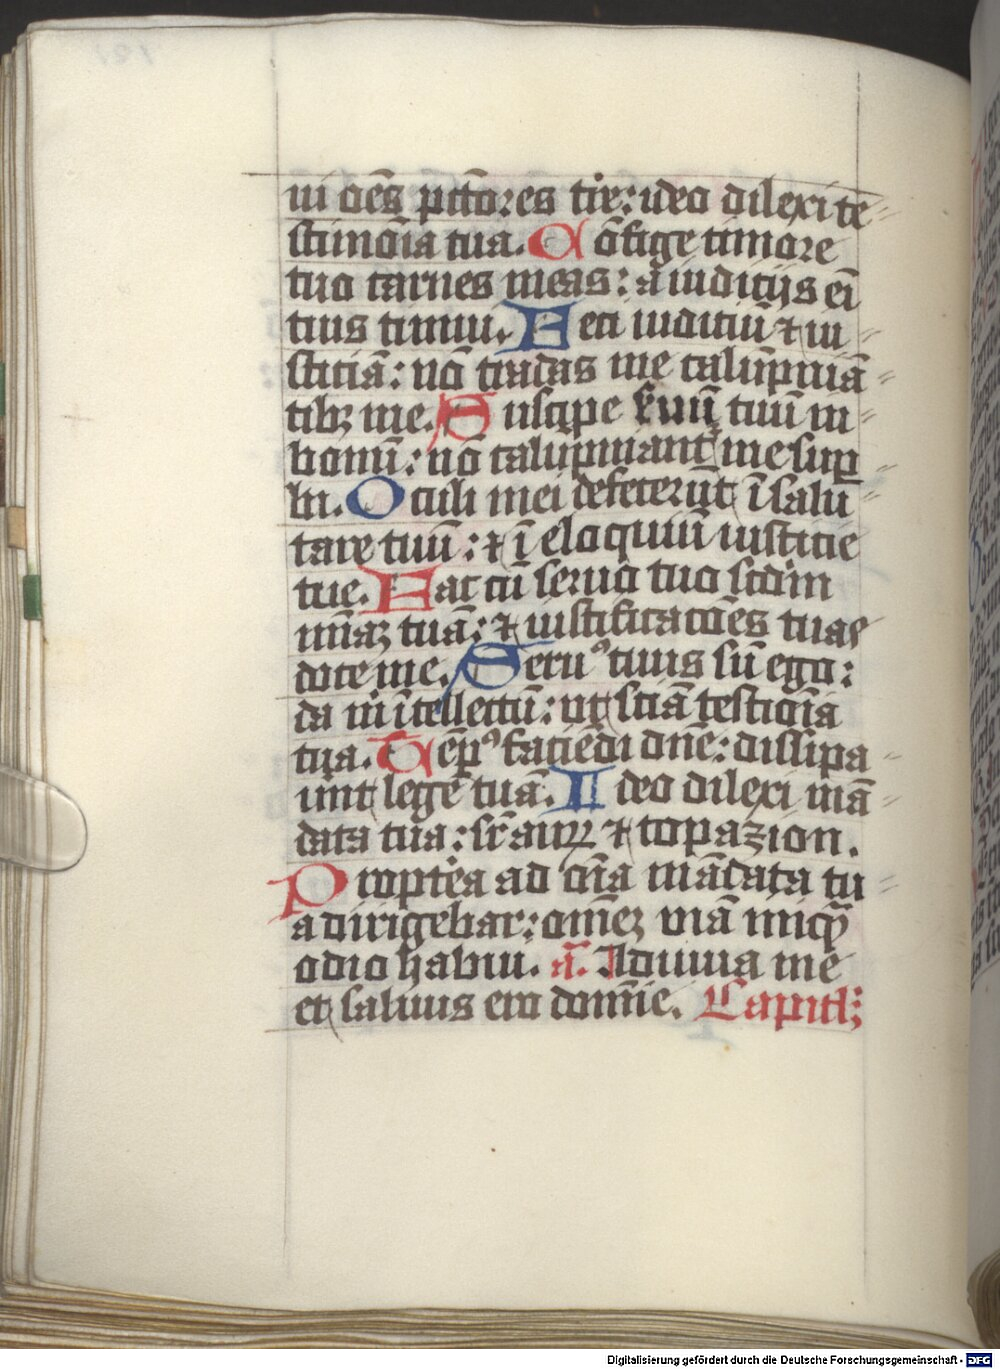 ui oēs pctōres tr̄e: ideo dilexi te
stimōīa tua. Cōfige timore
tuo carnes meas: a iudicijs ei
tuis timui. Feci iudiciū ⁊ iu
sticiā: nō tradas me calūpniā
tibꝫ me. Suscipe ẜuū tuū in
bonū: nō calūpniant me suꝑ
bi. Oculi mei defecerūt ī salu
tare tuū: ⁊ ī eloquiuū iusticie
tue. Fac cū seruo tuo scd̄m
mīaꝫ tuā: ⁊ iustificacōēs tuas
doce me. Seruꝰ tuus sū ego:
da m̍ ītellectū: vt sciā testiōīa
tua. Tēpꝰ faciēdi dn̄e: dissipa
unt legē tuā. Ideo dilexi mā
data tua: sr̄ auꝝ ⁊ topazion.
Proptēa ad oīa mādata tu
a dirigebar: om̄eꝫ viā iniqͣꝫ
odio habui. a᷒. Adiuua me
et saluus ero domīe. Capitl̄;
Digitalisierung gefördert durch die Deutsche Forschungsgemeinschaft - DFG